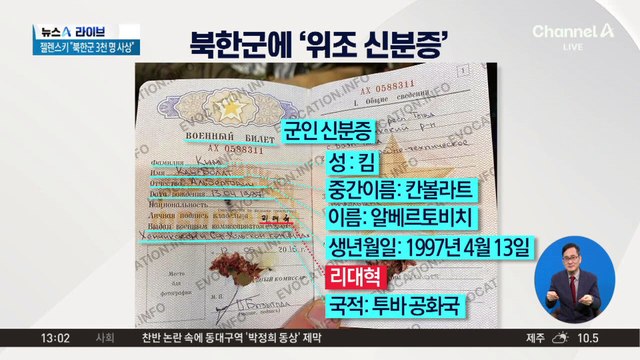 뉴스A 라이브
젤렌스키 "북한군 3천 명 사상"
북한군에 '위조 신분증'
Channel A
LIVE
EVOCATION.INFO
AX 0588311
1
I. Общие сведения
ВОЕННЫЙ БИЛЕТ
AX 0588311
군인 신분증
Фамилия Ким
성 : 킴
Имя
중간이름: 칸볼라트
Отчество
이름: 알베르토비치
Дата рождения 13.04.1997
생년월일: 1997년 4월 13일
Национальность
Личная подпись владельца 리대혁
리대혁
Выдан военным комиссариатом
국적: 투바 공화국
2016 г.
Место
для
фотографии
М. П.
13:02 사회 찬반 논란 속에 동대구역 '박정희 동상' 제막
제주 10.5